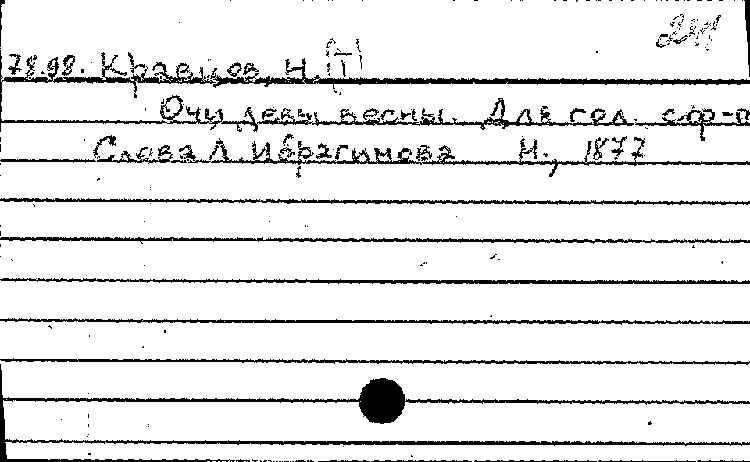 241
7898. Кравцов, Н. [I]
Очи девы весны. Для гол. с ф-п
Слова Л. Ибрагимова Н., 1877